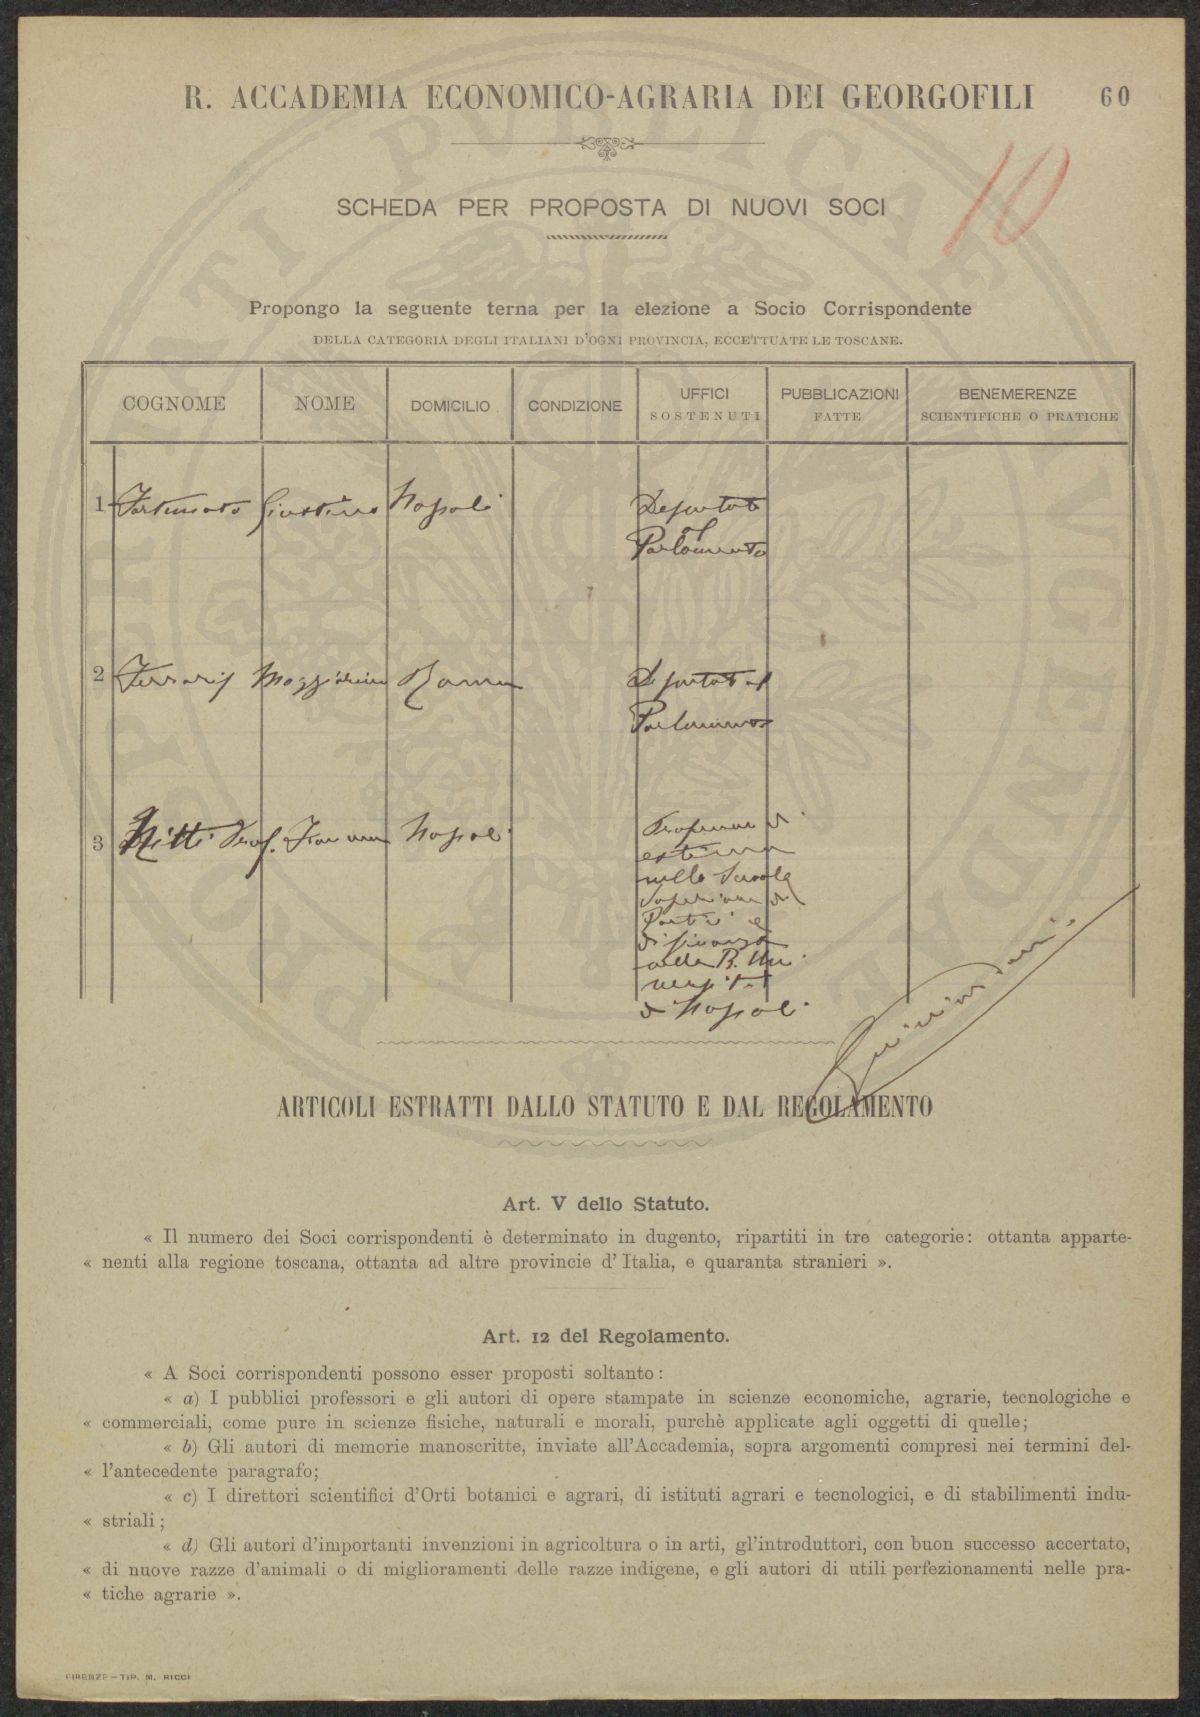 R. ACCADEMIA ECONOMICO-AGRARIA DEI GEORGOFILI 60
10
SCHEDA PER PROPOSTA DI NUOVI SOCI
Propongo la seguente terna per la elezione a Socio Corrispondente
DELLA CATEGORIA DEGLI ITALIANI D'OGNI PROVINCIA, ECCETTUATE LE TOSCANE.
COGNOME NOME DOMICILIO CONDIZIONE UFFICI SOSTENUTI PUBBLICAZIONI FATTE BENEMERENZE SCIENTIFICHE O PRATICHE
1 Fortunato Giustino Napoli Deputato
al
Parlamento
2 Ferraris Maggiorino Roma Deputato al
Parlamento
3 Nitti Prof. Napoli Professore di
nella Scuola
Superiore di
Portici e
di finanza
nella R. Uni
versità
di Napoli
ARTICOLI ESTRATTI DALLO STATUTO E DAL REGOLAMENTO
Art. V dello Statuto.
« Il numero dei Soci corrispondenti è determinato in dugento, ripartiti in tre categorie: ottanta apparte-
« nenti alla regione toscana, ottanta ad altre provincie d' Italia, e quaranta stranieri ».
Art. 12 del Regolamento.
« A Soci corrispondenti possono esser proposti soltanto:
« a) I pubblici professori e gli autori di opere stampate in scienze economiche, agrarie, tecnologiche e
« commerciali, come pure in scienze fisiche, naturali e morali, purchè applicate agli oggetti di quelle;
« b) Gli autori di memorie manoscritte, inviate all'Accademia, sopra argomenti compresi nei termini del-
« l'antecedente paragrafo;
« c) I direttori scientifici d'Orti botanici e agrari, di istituti agrari e tecnologici, e di stabilimenti indu-
« striali;
« d) Gli autori d'importanti invenzioni in agricoltura o in arti, gl'introduttori, con buon successo accertato,
« di nuove razze d'animali o di miglioramenti delle razze indigene, e gli autori di utili perfezionamenti nelle pra-
« tiche agrarie ».
FIRENZE - TIP. M. RICCI